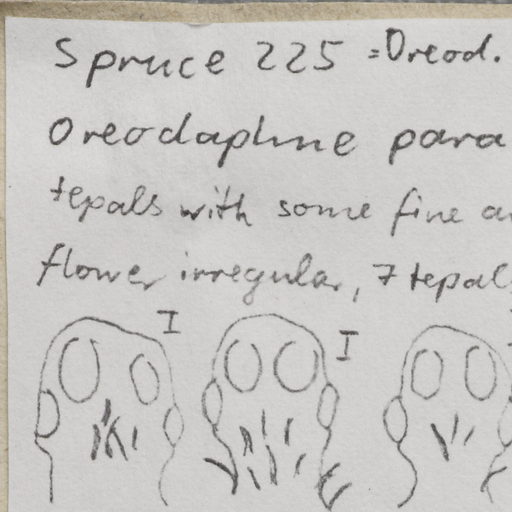 Spruce 225 = Oreod.
Oreodaphne para
tepals with some fine a
flower irregular, 7 tepals
I I